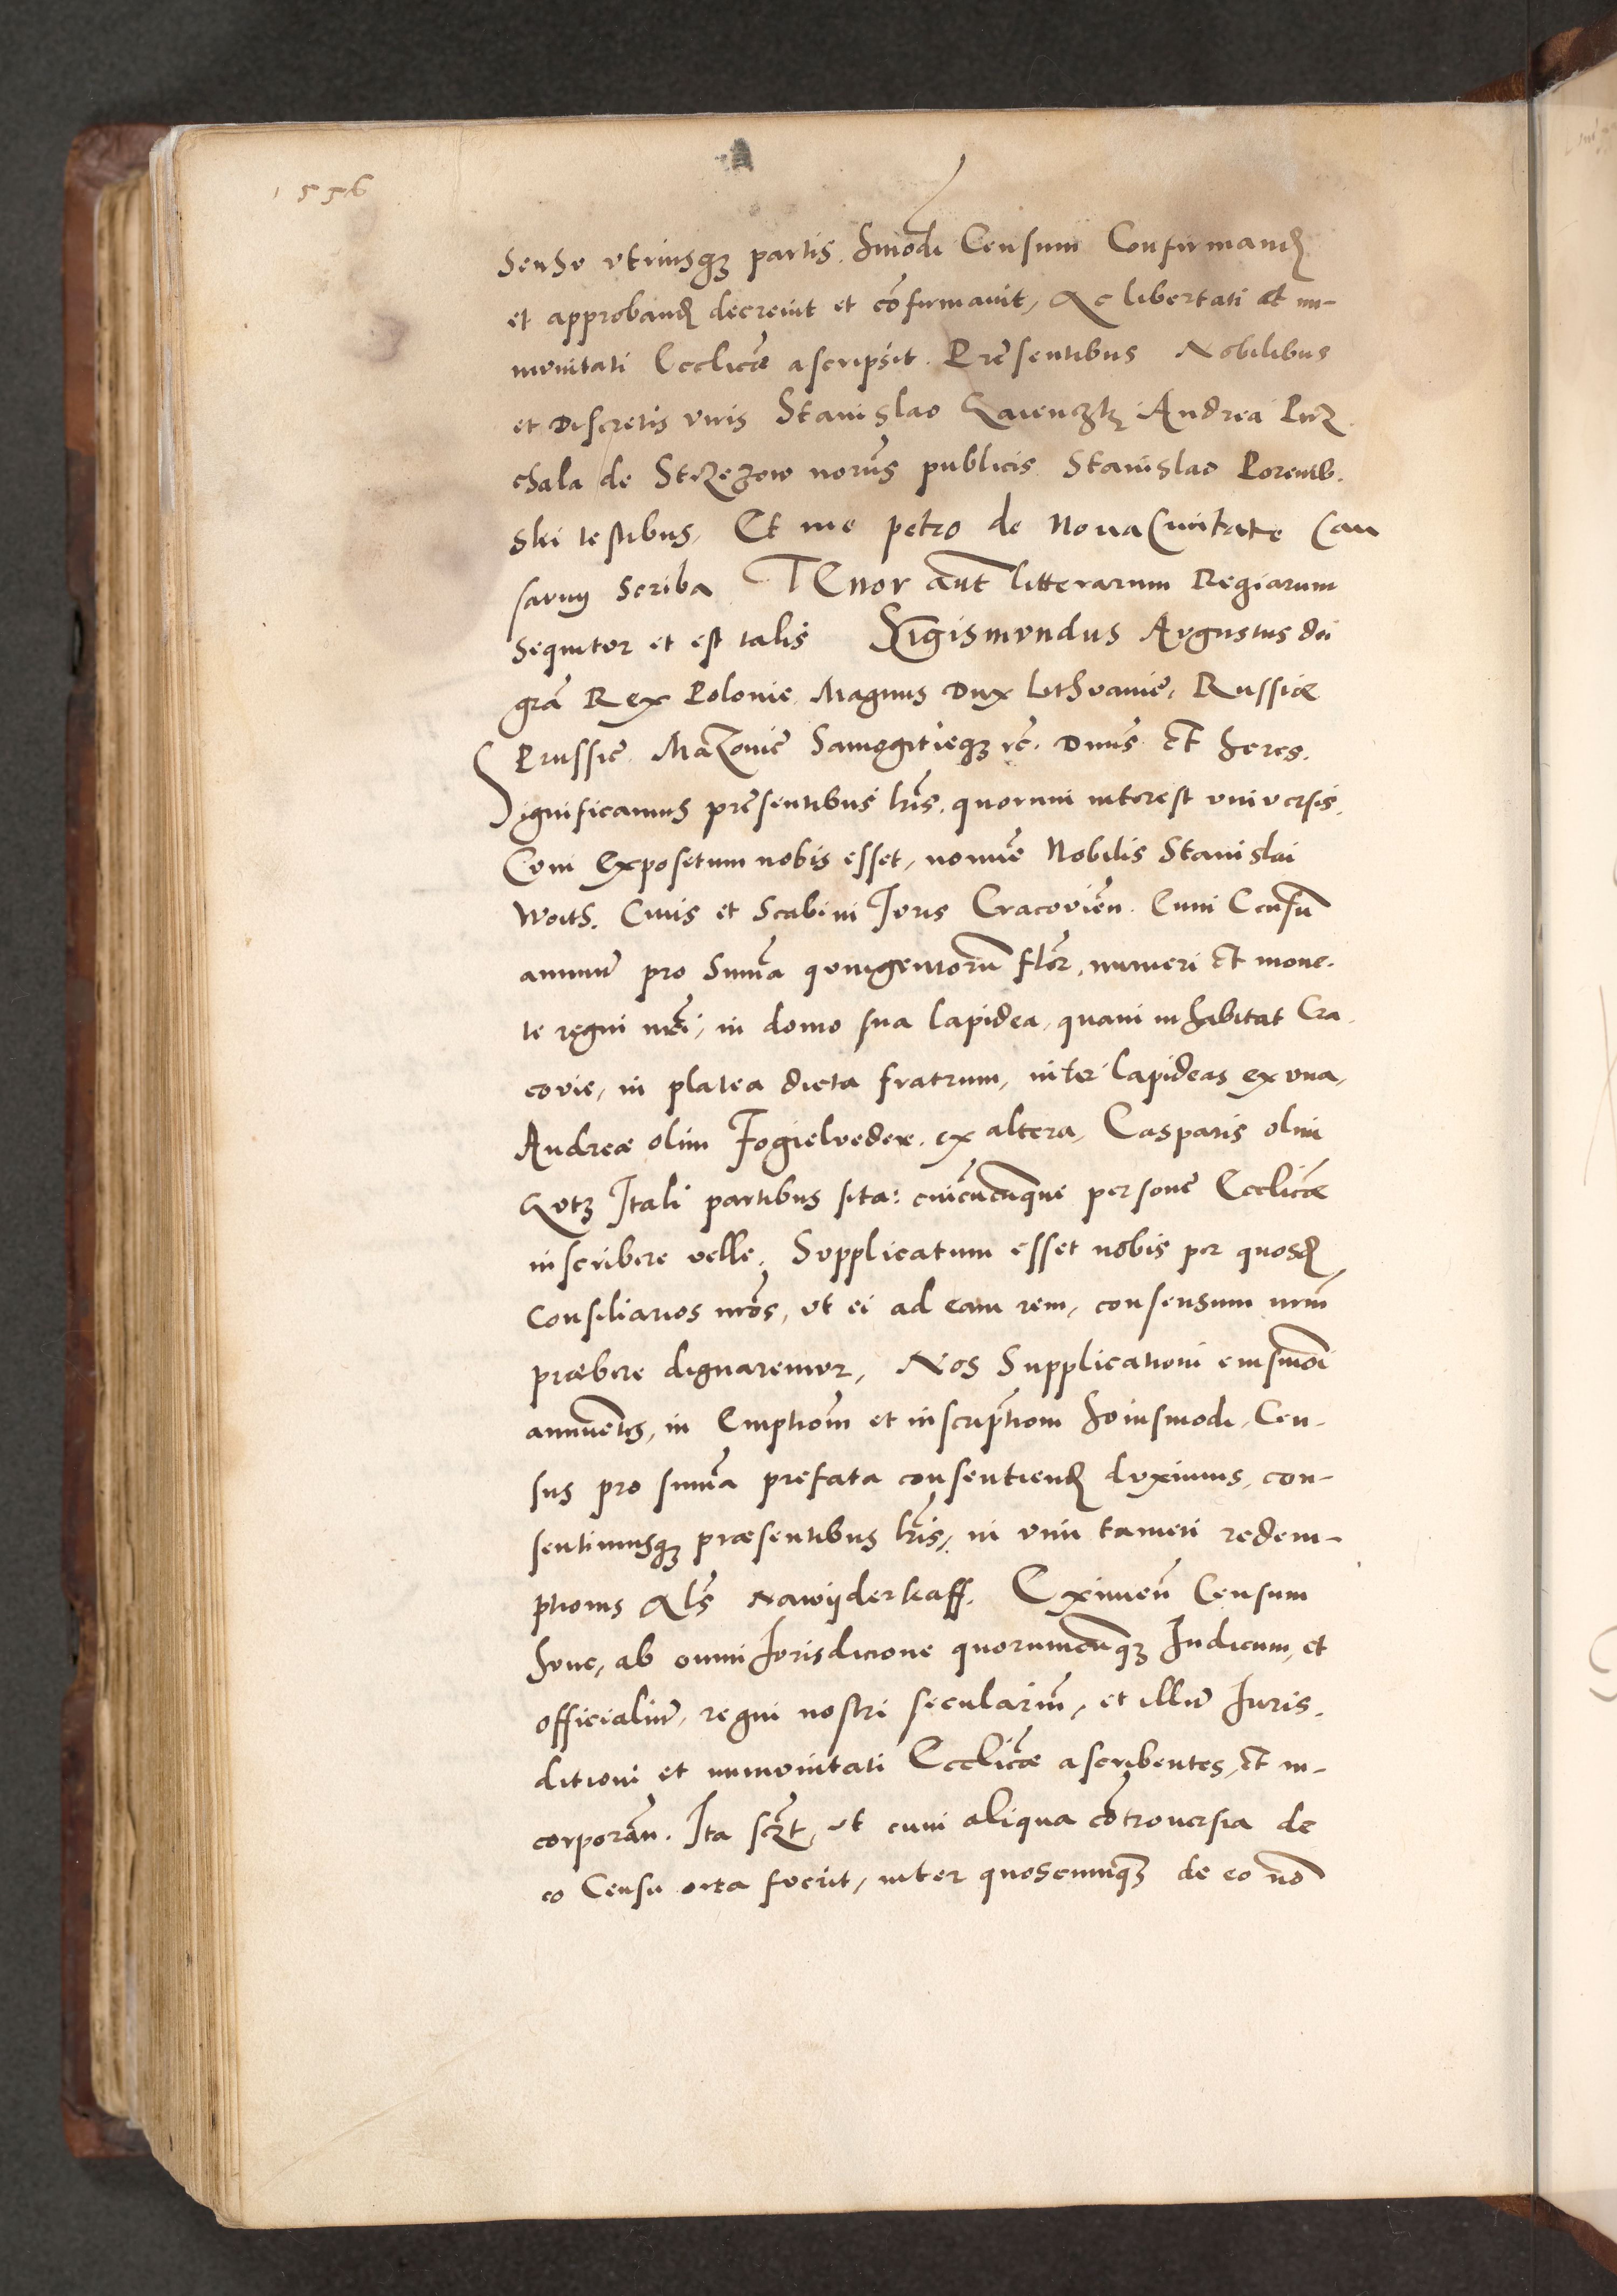 1556
senso utriusq3 partis. Hmodi Censum Confirmand
et approband decreuit et cōfirmauit, Ac libertati et im-
munitati Ecclicæ ascripsit. Præsentibus Nobilibus
et Discretis viris Stanislao Andrea Prz
chala de Strzezow norus publicis Stanislao Poremb.
ski testibus, Et me petro de Noua Ciuitate Cau
sarum Scriba. TEnor aut litterarum Regiarum
sequitur et est talis Sigismundus Augustus dei
gra Rex Polonie. Magnus Dux Lithuanie, Russiæ
Prussie. Mazouie Samogitieq3 rc. Dnus et heres.
Significamus presentibus lris. quorum interest vniuersis.
Cum Expositum nobis esset, nomine Nobilis Stanislai
Woith. Ciuis et Scabini Juris Cracouien. Eum Censum
annuum pro Summa quingentorum flor. numeri et mone-
te regni nri, in domo sua lapidea, quam inhabitat Cra-
couie, in platea dicta fratrum, inter lapideas ex vna,
Andreæ olim Fogielueder. ex altera, Casparis olim
Gutz Itali partibus sita: cuicunque persone Ecclicæ
inscribere velle. Supplicatum esset nobis per quosd
Consiliarios nros, ut ei ad eam rem, consensum nrum
præbere dignaremur, Nos Supplicationi eiusmodi
annuentes, in Emptionem et inscriptionem huiusmodi Cen-
sus pro summa prefata consentiend duximus, con-
sentimusq3 præsentibus lris, in vim tamen redem-
ptionis Als nawyderkaff. Eximen Censum
hunc, ab omni Jurisdicione quorumcunq3 Judicum, et
officialium, regni nostri secularium, et illum Juris-
ditioni et immunitati Ecclicæ ascribentes, et in-
corporan. Ita scz ut cum aliqua cōtrouersia de
eo Censu orta fuerit, inter quoscunq3 de eo nō